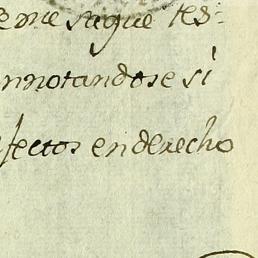 eme saque tes:
nnotandose si
fectos en derecho